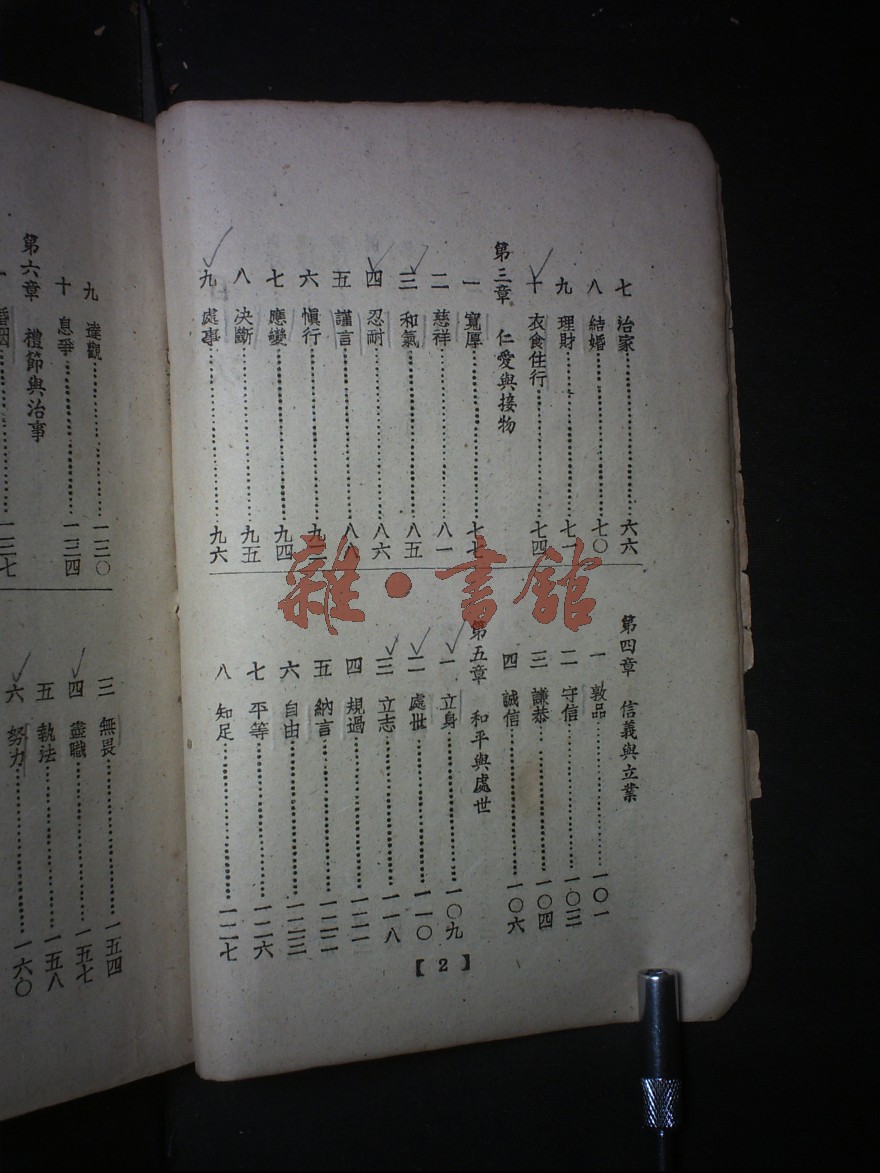 七 治家 六六
八 結婚 七〇
九 理財 七一
十 衣食住行 七四
第三章 仁愛與接物
一 寬厚 七七
二 慈祥 八一
三 和氣 八五
四 忍耐 八六
五 謹言 八八
六 慎行
七 應變 九四
八 决斷 九五
九 處事 九六
第四章 信義與立業
一 敦品 一〇一
二 守信 一〇三
三 謙恭 一〇四
四 誠信 一〇六
第五章 和平與處世
一 立身 一〇九
二 處世 一一〇
三 立志 一一八
四 規過 一二一
五 納言 一二二
六 自由 一二三
七 平等 一二六
八 知足 一二七
【2】
九 達觀 一三〇
十 息爭 一三四
第六章 禮節與治事
一 婚姻 一三七
三 無畏 一五四
四 盡職 一五七
五 執法 一五八
六 努力 一六〇
雜·書館